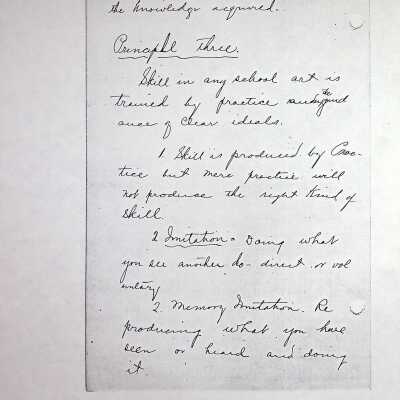 the knowledge acquired.
Principle Three.
Skill in any school art is
trained by practice under the guid
ance of clear ideals.
1. Skill is produced by Prac-
tice but mere practice will
not produce the right kind of
skill.
2 Imitation = Doing what
you see another do - direct or vol
untary
2. Memory Imitation. Re
producing what you have
seen or heard and doing
it.